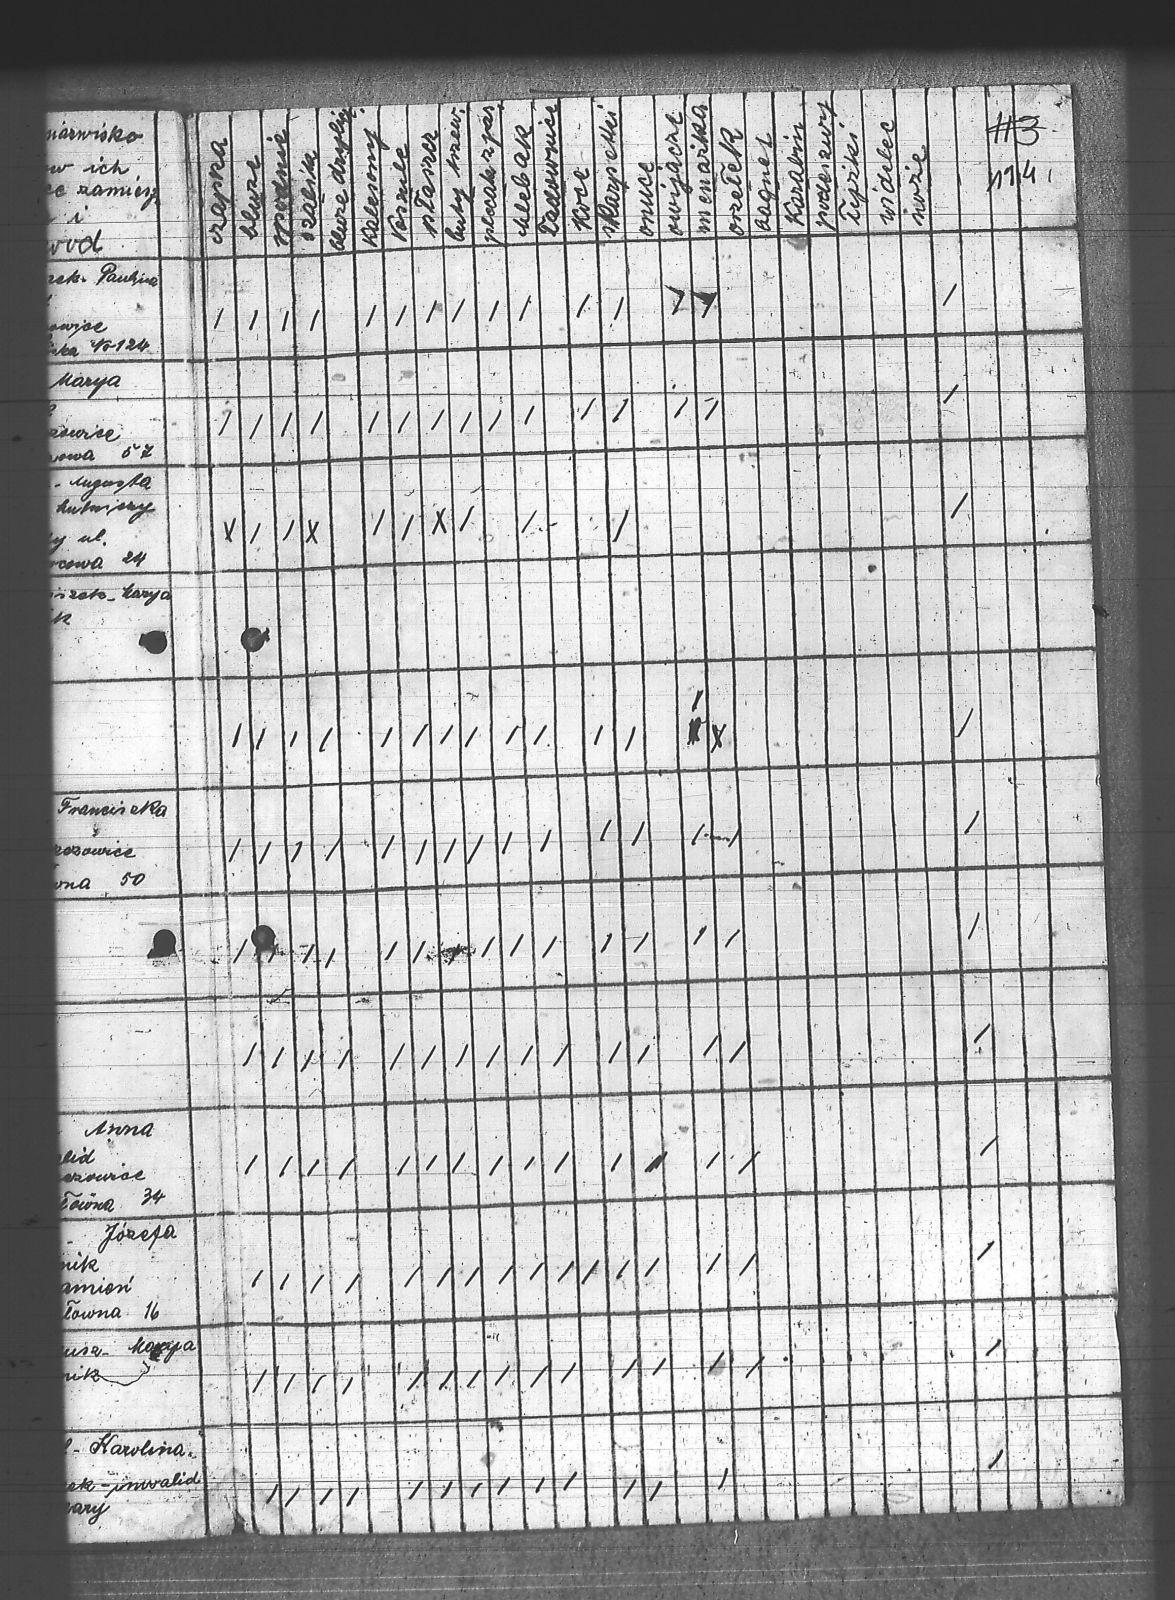 nazwisko
ich
zamiesz
i
wód
czapka
bluze
spodnie
szalik
bluze drylich
Kalesony
Koszule
płaszcz
buty trzew.
plecak z pas
chlebak
Ładownice
Koce
skarpetki
onuce
owijacze
menażka
orzełek
bagnet
Karabin
podeszwy
Łyżki
widelec
noże
#3
1914
Paulina
owice
№ 124
Marya
zowice
owa 57
Augusta
hutniczy
y ul.
rcowa 24
iszek - Marya
ik
Franciszka
rzozowice
wna 50
Anna
alid
zezowice
łówna 34
Józefa
nik
amień
łówna 16
usz - Marya
nik
l - Karolina
ek - inwalid
kary